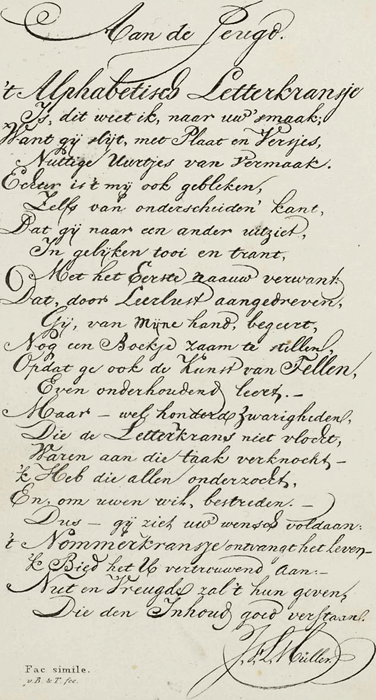 Aan de Jeugd.
't Alphabetisch Letterkransje
Is, dit weet ik, naar uw' smaak;
Want gij slijt, met Plaat en Versjes,
Nuttige Uurtjes van Vermaak.
Echter is 't mij ook gebleken,
Zelfs van onderscheiden' kant,
Dat gij naar een ander uitziet,
In gelijken tooi en trant,
Met het Eerste naauw verwant.
Dat, door Leerlust aangedreven,
Gij, van Mijne hand, begeert,
Nog een Boekje zaam te stellen,
Opdat ge ook de Kunst van Tellen,
Even onderhoudend leert. –
Maar – wel honderd Zwarigheden,
Die de Letterkrans niet vlocht,
Waren aan die taak verknocht –
'k Heb die allen onderzocht,
En, om uwen wil, bestreden. –
Dus – gij ziet uw wensch voldaan:
't Nommerkransje ontvangt het leven –
'k Bied het U vertrouwend aan: –
Nut en Vreugde zal 't hun geven,
Die den Inhoud goed verstaan.
J. F. L. Müller.
Fac simile.
v. B. & T. fec.